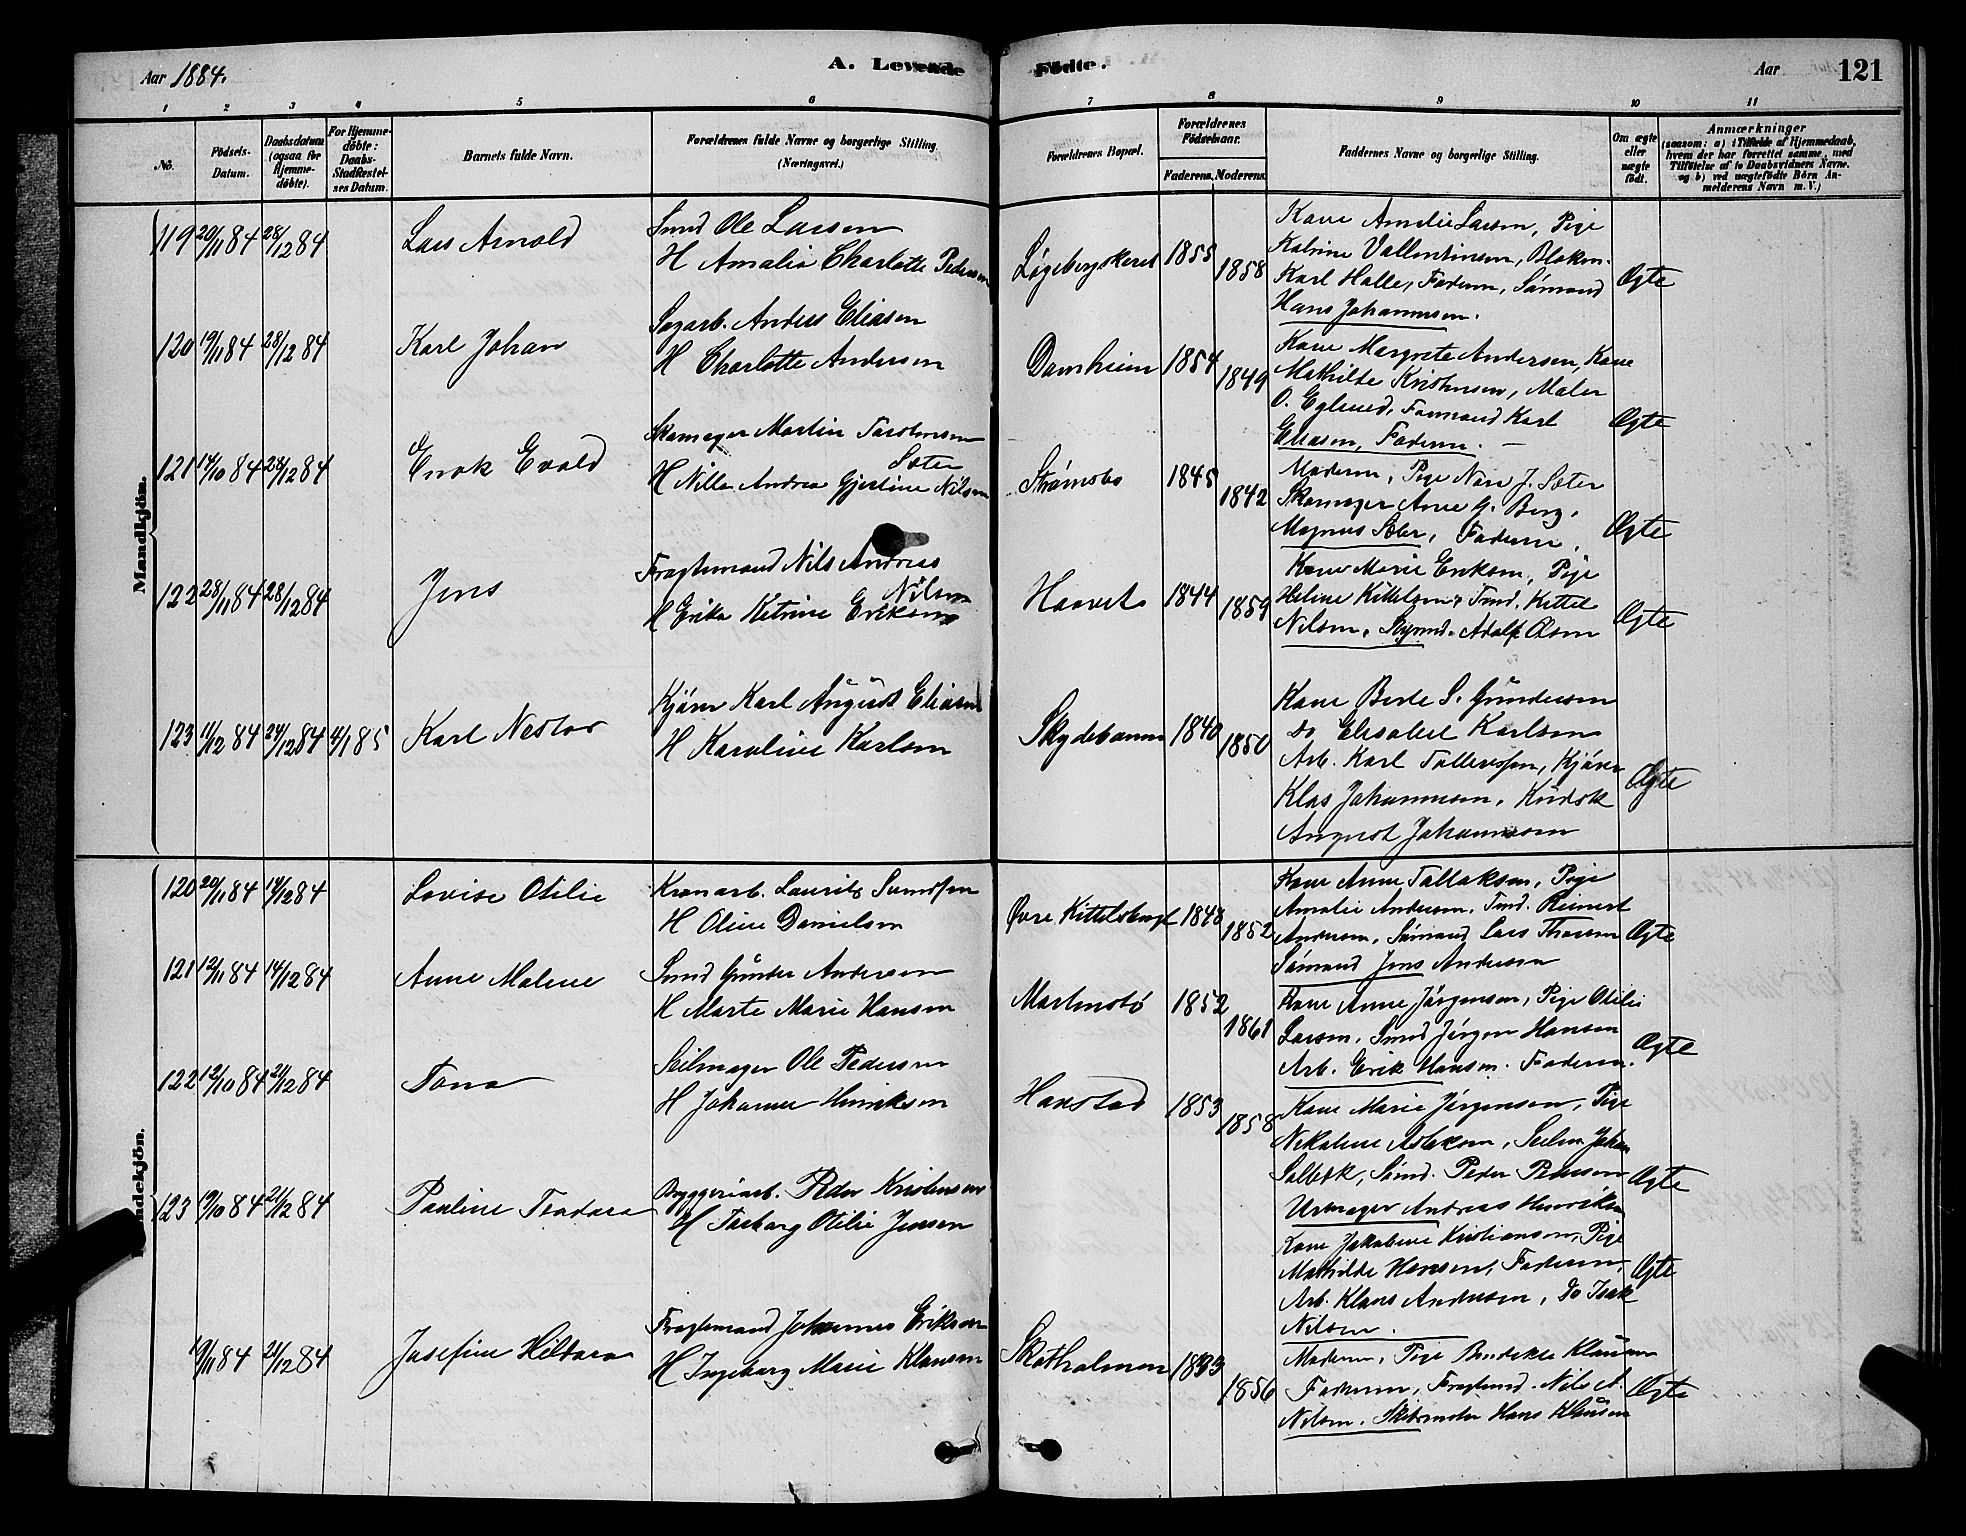 Aar 1884.
A. Levende Födte.
Aar
121
1 2 3 4 5 6 7 8 9 10 11
No.
Födsels-Datum.
Daabsdatum (ogsaa for Hjemme-döbte).
For Hjemme-döbte: Daabs-Stadfæstel-ses Datum.
Barnets fulde Navn.
Forældrenes fulde Navne og borgerlige Stilling. (Næringsvei.)
Forældrenes Bopæl.
Forældrenes Födselsaar.
Faderens. Moderens.
Faddernes Navne og borgerlige Stilling.
Om ægte eller uægte födt.
Anmærkninger
(saasom: a) i Tilfælde af Hjemmedaab, hvem der har forrettet samme, med Tilföielse af to Daabsvidners Navne, og b) ved uægtefödte Börn An-melderens Navn m. V.)
Mandkjön.
119 20/11 84 28/12 84 Lars Arnold
Smd Ole Larsen
H Amalia Charlotte Pedersen
Løgebergskeret 1855 1858
Kone Amelie Larsen, Pige
Katrine Vallentinsen, Blokm.
Karl Halle, Faderen, Sømand
Hans Johannesen.
Ægte
120 19/11 84 28/12 84 Karl Johan
Sagarb. Anders Eliasen
H Charlotte Andersen
Damheim 1854 1849
Kone Margrete Andersen, Kone
Mathilde Kristensen, Maler
O. Eglund, Formand Karl
Eliasen, Faderen.
Ægte
121 14/10 84 28/12 84 Enok Evald
Skomager Martin Torstensen
Sæter
H Nille Andrea Gjertine Nilsen
Strømsbo 1845 1842
Moderen, Pige J. Sæter
Skomager Arne G. Berg,
Magnus Sæter, Faderen.
Ægte
122 28/11 84 28/12 84 Jens
Fragtemand Nils Andreas
Nilsen
H Erika Katrine Eriksen
Haavet 1844 1859
Kone Marie Eriksen, Pige
Heline Kittelsen, Tmd. Kittel
Nilsen, Adolf Olsen
Ægte
123 11/12 84 24/12 84 4/1 85 Karl Nestor
Kjører Karl August Eliasen
H Karoline Karlsen
Skydebanen 1840 1850
Kone Berte S. Gundersen
do Elisabet Karlsen
Arb. Karl Tallevsen, Kjører
Klas Johannesen, Kudsk
August Johannesen
Ægte
Kvindekjön.
120 20/11 84 14/12 84 Lovise Otilie
Kranarb. Laurits Svendsen
H Oline Danielsen
Øvre Kittelsbugt 1848 1852
Kone Anne Tallaksen, Pige
Amalie Andersen, Tmd. Reinert
Andersen, Sømand Lars Thorsen
Sømand Jens Andersen
Ægte
121 12/11 84 14/12 84 Anne Malene
Smd Gunder Andersen
H Marte Marie Hansen
Martinsbø 1852 1861
Kone Anne Jørgensen, Pige Otilie
Larsen, Smd Jørgen Hansen
Arb. Erik Hansen. Faderen.
Ægte
122 12/10 84 21/12 84 Tona
Seilmager Ole Pedersen
H Johanne Henriksen
Havstad 1853 1858
Kone Marie Jørgensen, Pige
Nikoline Aslaksen, Seilm. Johan
Solbæk, Sømd. Peder Pedersen
Urmager Andreas Henriksen
Ægte
123 9/10 84 21/12 84 Pauline Teodora
Bryggeriarb. Peder Kristensen
H Torborg Otilie Jensen
Kone Jakobine Kristiansen, Pige
Mathilde Hansen, Faderen,
Arb. Klaus Andersen, Do Isak
Nilsen.
Ægte
19/11 84 21/12 84 Josefine Hildara
Fragtemand Johannes Eriksen
H Ingeborg Marie Klausen
Skotholmen 1833 1856
Moderen, Pige Bendikte Klausen
Faderen, Fragtmd. Nils A.
Nilsen. Skibsreder Hans Klausen
Ægte